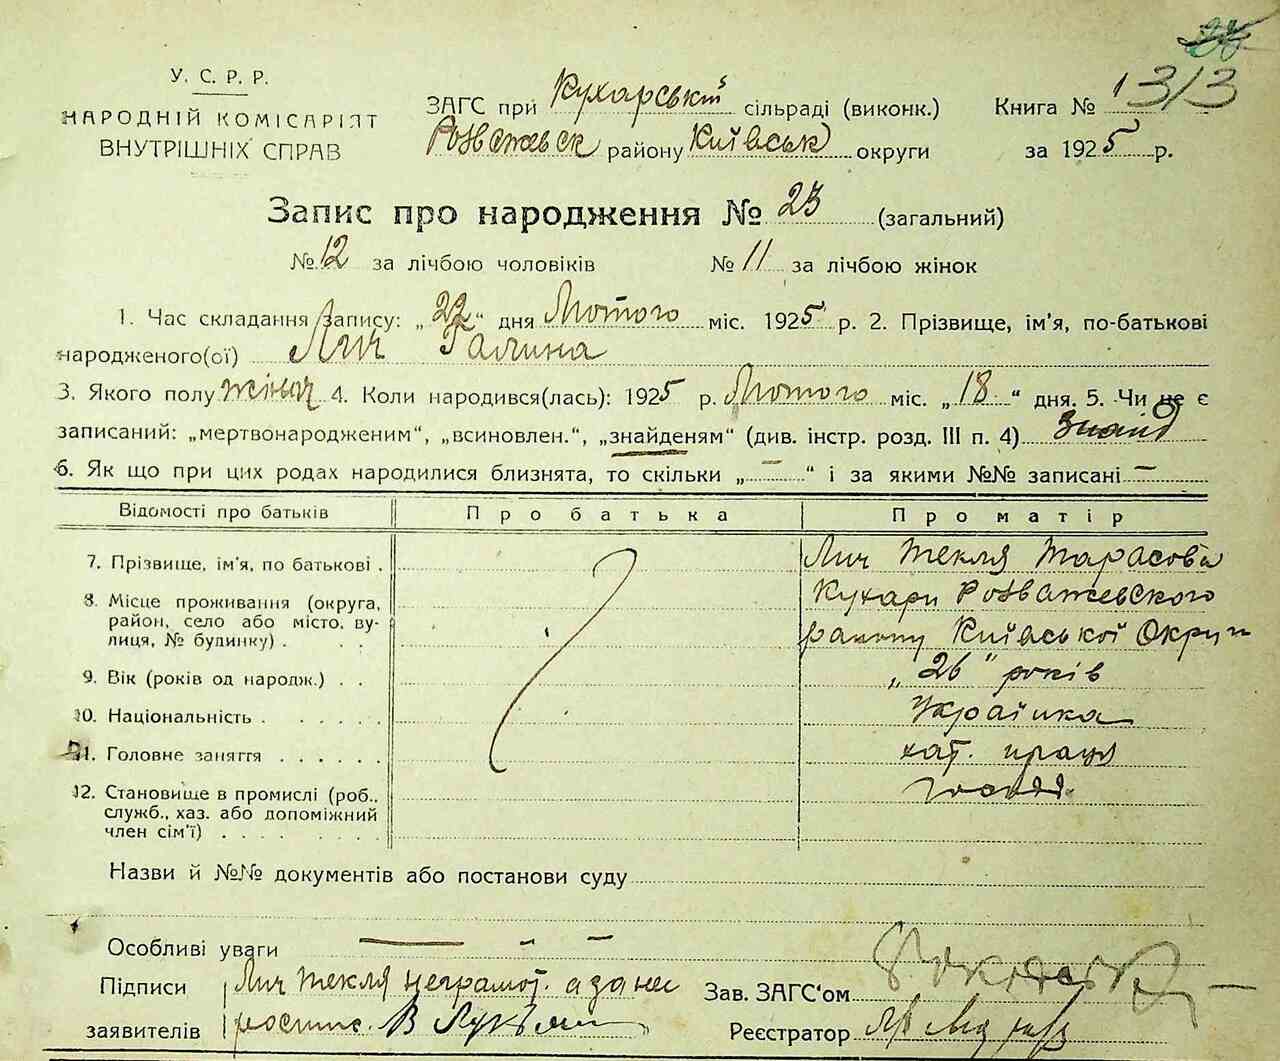 У. С. Р. Р.
НАРОДНІЙ КОМІСАРІЯТ
ВНУТРІШНІХ СПРАВ
ЗАГС при Кухарській сільраді (виконк.)
Розважевськ району Київськ округи
Книга № 13/3
за 1925 р.
Запис про народження № 23 (загальний)
№ 12 за лічбою чоловіків № 11 за лічбою жінок
1. Час складання запису: „22“ дня Лютого міс. 1925 р. 2. Прізвище, ім'я, по-батькові
народженого(ої) Лич Галина
3. Якого полу жіноч 4. Коли народився(лась): 1925 р. Лютого міс. „18“ дня. 5. Чи не є
записаний: „мертвонародженим“, „всиновлен.“, „знайденям“ (див. інстр. розд. III п. 4) Знайд
6. Як що при цих родах народилися близнята, то скільки „ — “ і за якими №№ записані —
Відомості про батьків Про батька Про матір
7. Прізвище, ім'я, по батькові . Лич Текля Тарасова
8. Місце проживання (округа, Кухари Розважевського
район, село або місто, ву- району Київської Округи
лиця, № будинку) . . .
9. Вік (років од народж.) . . „26“ років
10. Національність . . . . . . Українка
11. Головне заняття . . . . . . хат. праця
12. Становище в промислі (роб.,
служб., хаз. або допоміжний
член сім'ї) . . . . .
Назви й №№ документів або постанови суду
Особливі уваги — – –
Підписи Лич Текля неграмот. а за неї
заявителів роспис. В
Зав. ЗАГС'ом
Реєстратор